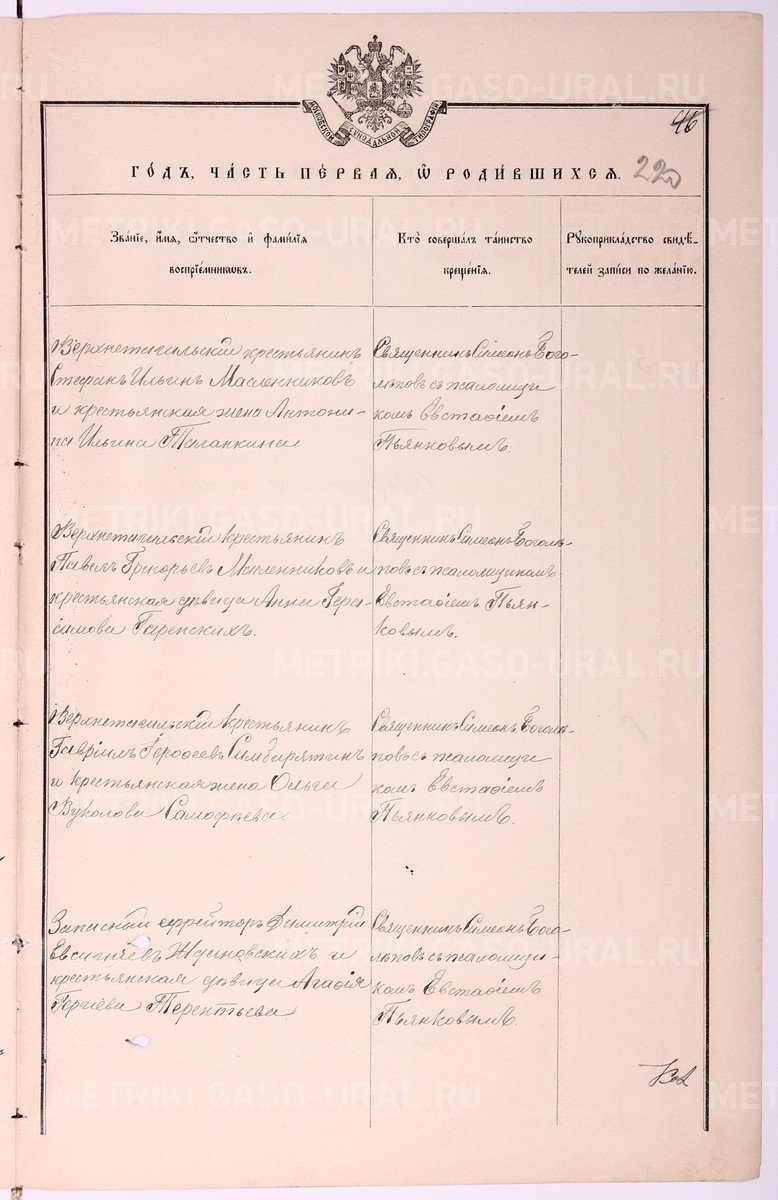 МОСКОВСКОЙ СѴНОДАЛЬНОЙ ТИПОГРАФІИ
46
ГО́ДЪ, ЧА́СТЬ ПЕ́РВАЯ, Ѡ҆ РОДИ́ВШИХСЯ.
220
Зва́нїе, и҆́мя, ѻ҆́тчество и҆ фами́лїя
воспрїе́мникѡвъ.
Кто̀ соверша́лъ та́инство
креще́нїя.
Рꙋкоприкла́дство свидѣ́-
телей за́писи по жела́нїю.
Верхнетагильскій крестьянинъ
Стефанъ Ильинъ Масленниковъ
и крестьянская жена Антони-
на Ильина Таланкина
Священникъ Симеонъ Бого-
люповъ съ псаломщи
комъ Евстафіемъ
Пьянковымъ.
Верхнетагильскій крестьянинъ
Павелъ Григорьевъ Масленниковъ и
крестьянская дѣвица Анна Гера-
симова Гаренскихъ.
Священникъ Симеонъ Боголю-
повъ съ псаломщикомъ
Евстафіемъ Пьян-
ковымъ.
Верхнетагильскій крестьянинъ
Гавріилъ Симбирятинъ
и крестьянская жена Ольга
Вуколова
Священникъ Симеонъ Боголю-
повъ съ псаломщи
комъ Евстафіемъ
Пьянковымъ.
Запасный ефрейторъ Димитрій
Ждановскихъ и
крестьянская дѣвица Агафія
Гергіева Терентьева
Священникъ Симеонъ Бого-
люповъ съ псаломщи-
комъ Евстафіемъ
Пьянковымъ.
METRIKI.GASO-URAL.RU